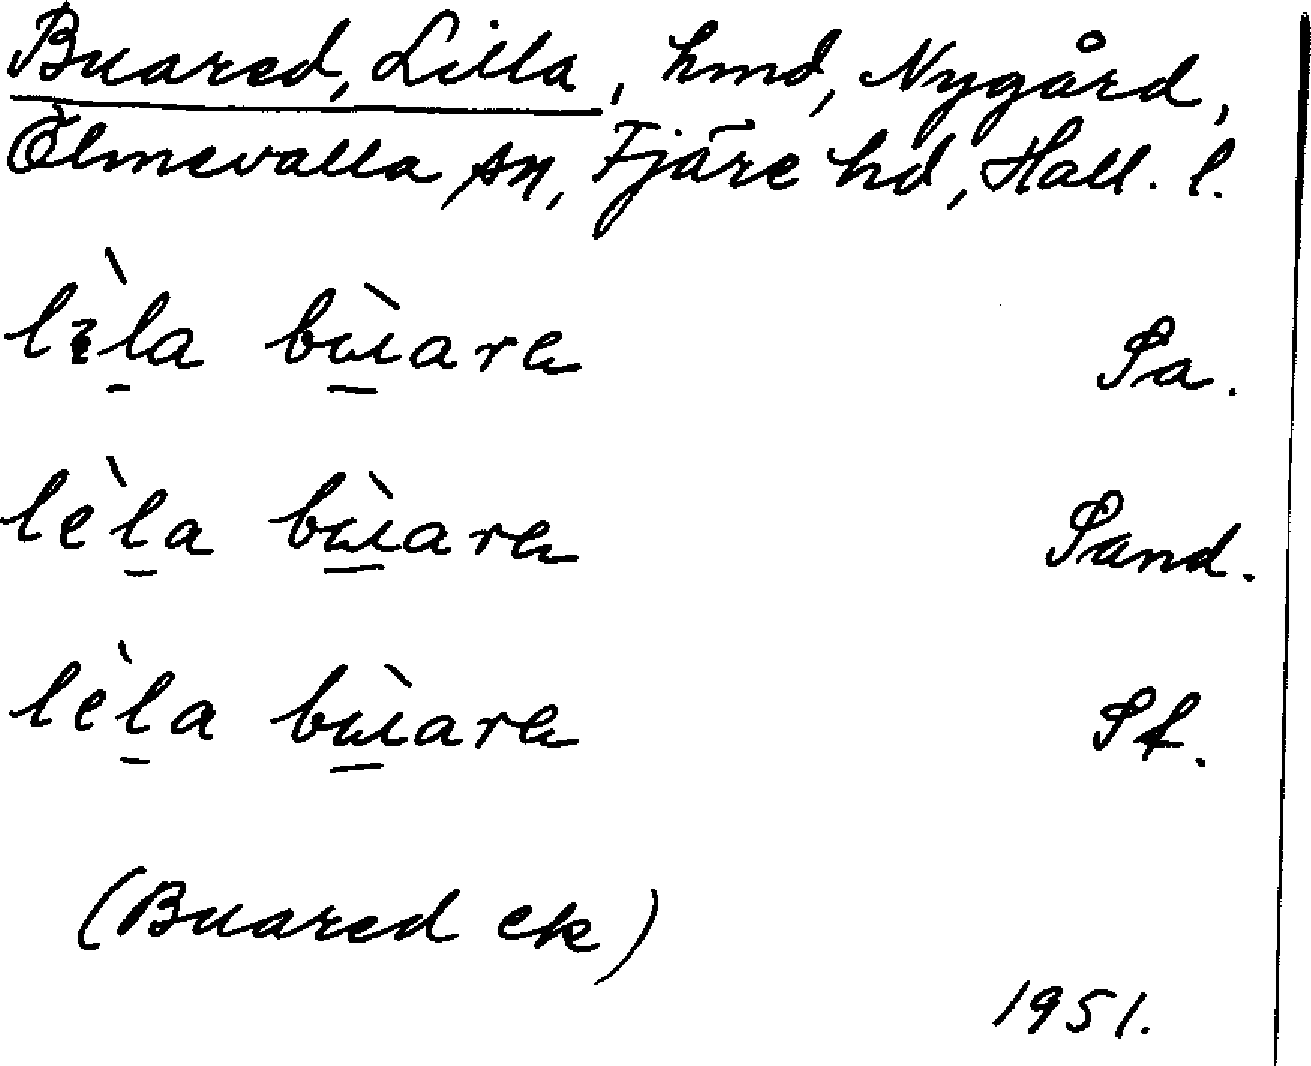 Buared, Lilla, hmd, Nygård,
Ölmevalla sn, Fjäre hd, Hall. l.
lìla bùare Sa.
lèla bùare Sand.
lèla bùare Sf.
(Buared ek)
1951.